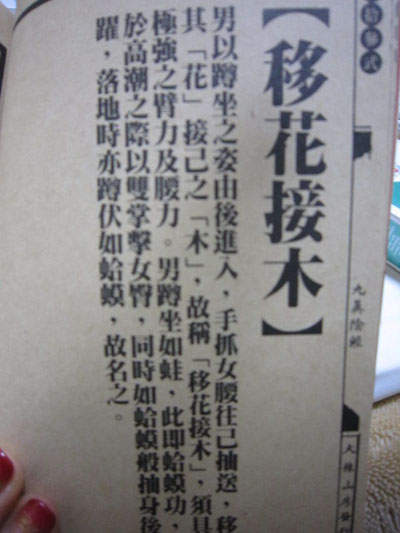 式
九真陰經
【移花接木】
男以蹲坐之姿由後進入，手抓女腰往己抽送，移
其「花」接己之「木」，故稱「移花接木」，須具
極強之臂力及腰力。男蹲坐如蛙，此即蛤蟆功，
於高潮之際以雙掌擊女臀，同時如蛤蟆般抽身後
躍，落地時亦蹲伏如蛤蟆，故名之。